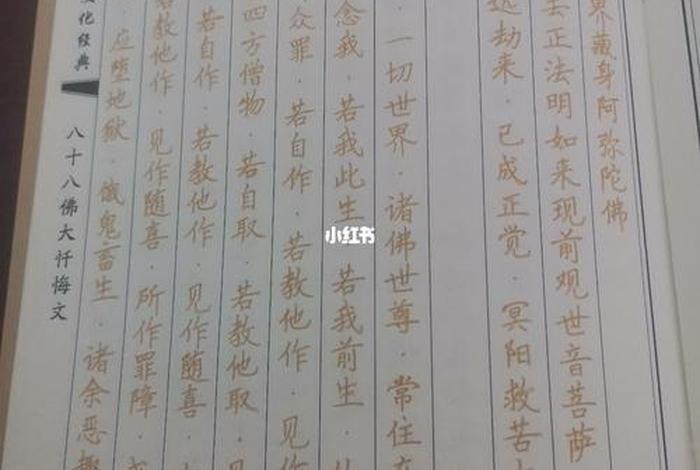 界藏身阿弥陀佛
去正法明如来现前观世音菩萨
劫来·已成正觉·冥阳救苦
一切世界·诸佛世尊·常住在
念我·若我此生·若我前生·从
众罪·若自作·若教他作·见作
四方僧物·若自取·若教他取·见
若自作·若教他作·见作随喜·
若教他作·见作随喜·所作罪障·或
应堕地狱·饿鬼畜生·诸余恶趣
化经典
八十八佛大忏悔文
小红书